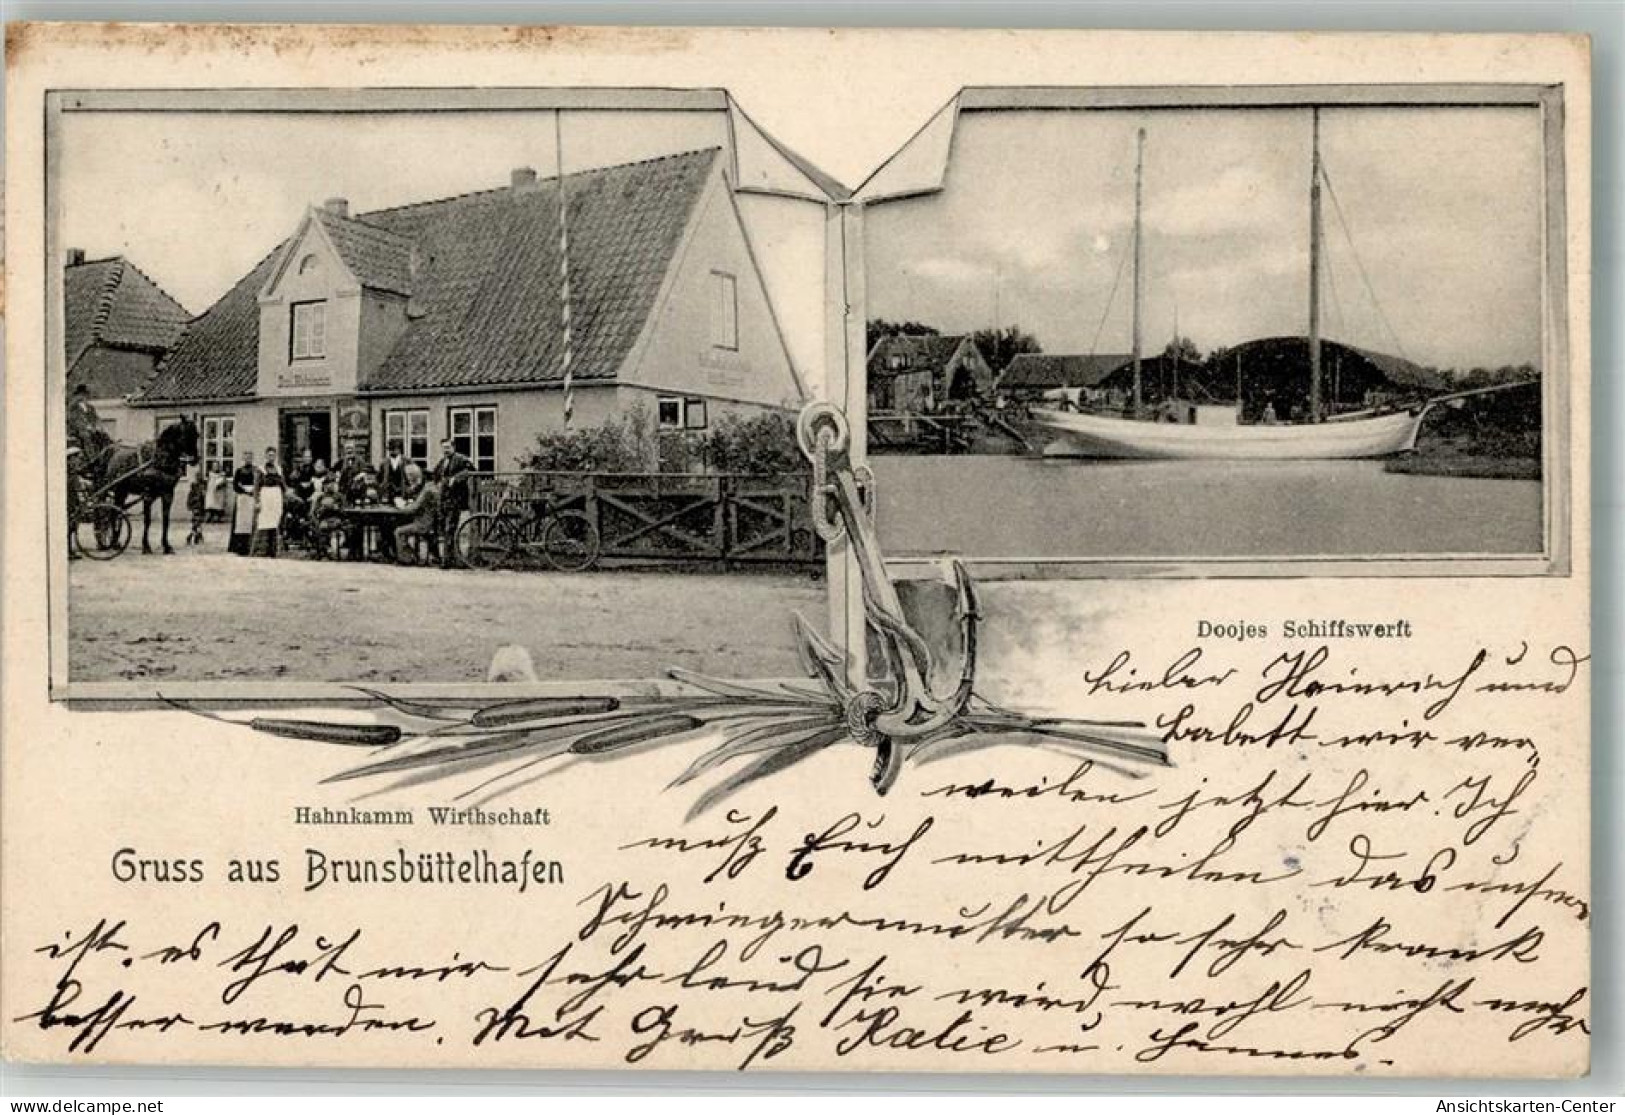 Doojes Schiffswerft
Lieber Heinrich und
Babett wir ver„
weilen jetzt hier. Ich
muß Euch mittheilen das unsere
Schwiegermutter so sehr krank
ist. es thut mir sehr leid sie wird wohl nicht mehr
besser werden. Mit Gruß Katie u. Hannes.
Hahnkamm Wirthschaft
Gruss aus Brunsbüttelhafen
delcampe.net
Ansichtskarten-Center